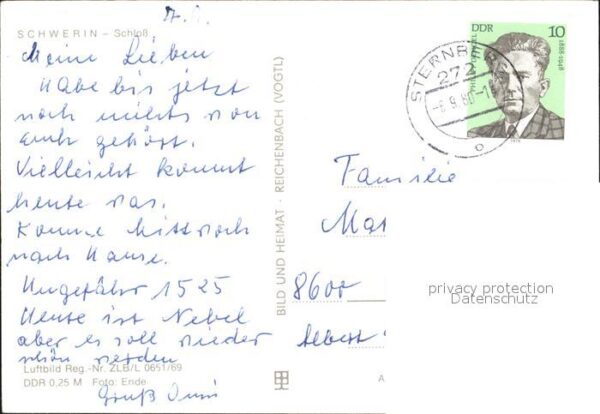 SCHWERIN – Schloß
Meine Lieben
Habe bis jetzt
noch nichts von
Euch gehört.
Vielleicht kommt
heute was.
Komme Mittwoch
nach Hause.
Ungefähr 1525
Heute ist Nebel
aber es soll wieder
schön werden
Luftbild Reg.-Nr. ZLB/L 0651/69
DDR 0,25 M Foto: Ende
Gruß
BILD UND HEIMAT · REICHENBACH (VOGTL)
DDR 10
1888-1948
STERNBERG
272
-8.9.80-1
Familie
Mat
8600
Albert
A
privacy protection
Datenschutz